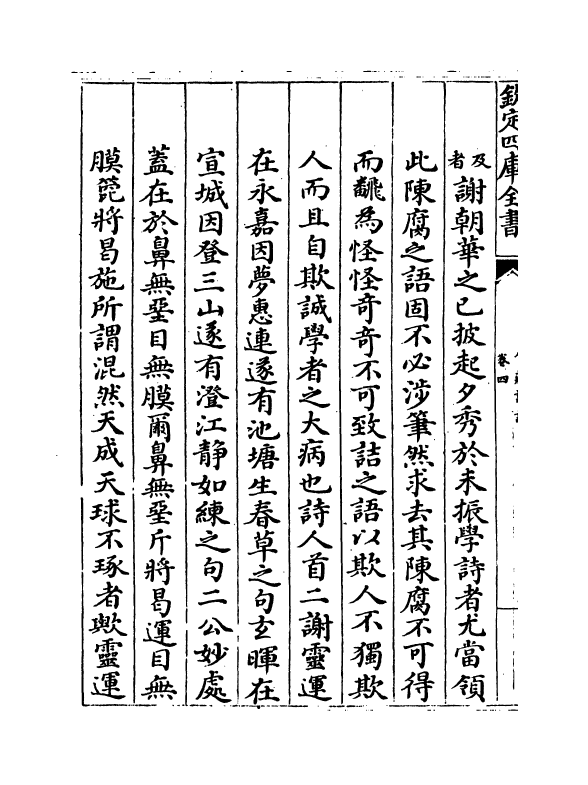 欽定四庫全書
卷四
及者謝朝華之已披起夕秀於未振學詩者尤當領
此陳腐之語固不必涉筆然求去其陳腐不可得
而翻為怪怪奇奇不可致詰之語以欺人不獨欺
人而且自欺誠學者之大病也詩人首二謝靈運
在永嘉因夢惠連遂有池塘生春草之句玄暉在
宣城因登三山遂有澄江靜如練之句二公妙處
蓋在於鼻無堊目無膜爾鼻無堊斤將曷運目無
膜篦將曷施所謂混然天成天球不琢者歟靈運